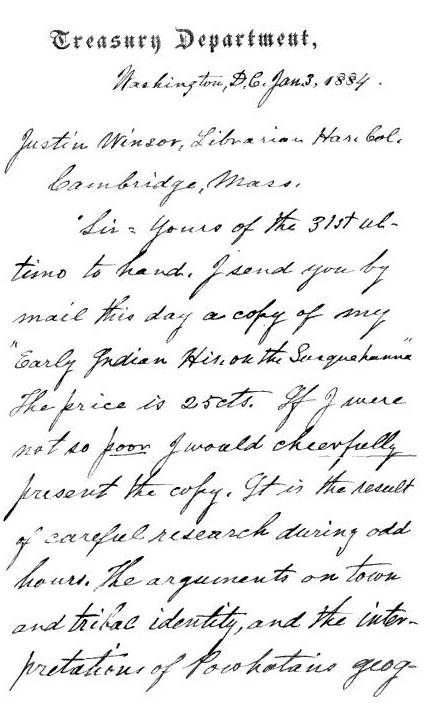 Treasury Department,
Washington, D.C. Jan 3, 1884.
Justin Winsor, Librarian Har. Col.
Cambridge, Mass.
Sir = Yours of the 31st ul-
timo to hand. I send you by
mail this day a copy of my
"Early Indian His. on the Susquehanna"
The price is 25cts. If I were
not so poor I would cheerfully
present the copy. It is the result
of careful research during odd
hours. The arguments on town
and tribal identity, and the inter-
pretations of Powhotans geog-